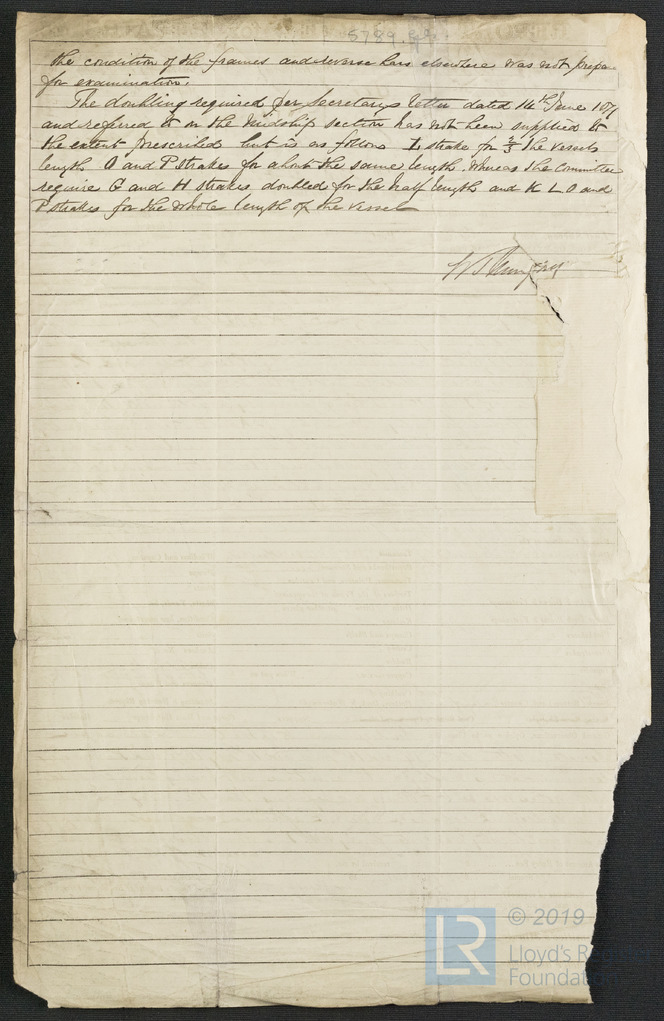 5789
the condition of the frames and reverse bars elsewhere was not prepare
for examination.
The doubling required per Secretary's letter dated 14th June 187
and referred to on the Midship section has not been supplied to
the extent prescribed but is as follows L strake for 2/3 the vessels
length O and P strakes for about the same length. Whereas the Committee
require G and H strakes doubled for the half length and K L O and
P strakes for the whole length of the vessel
LR
© 2019
Lloyd's Register
Foundation